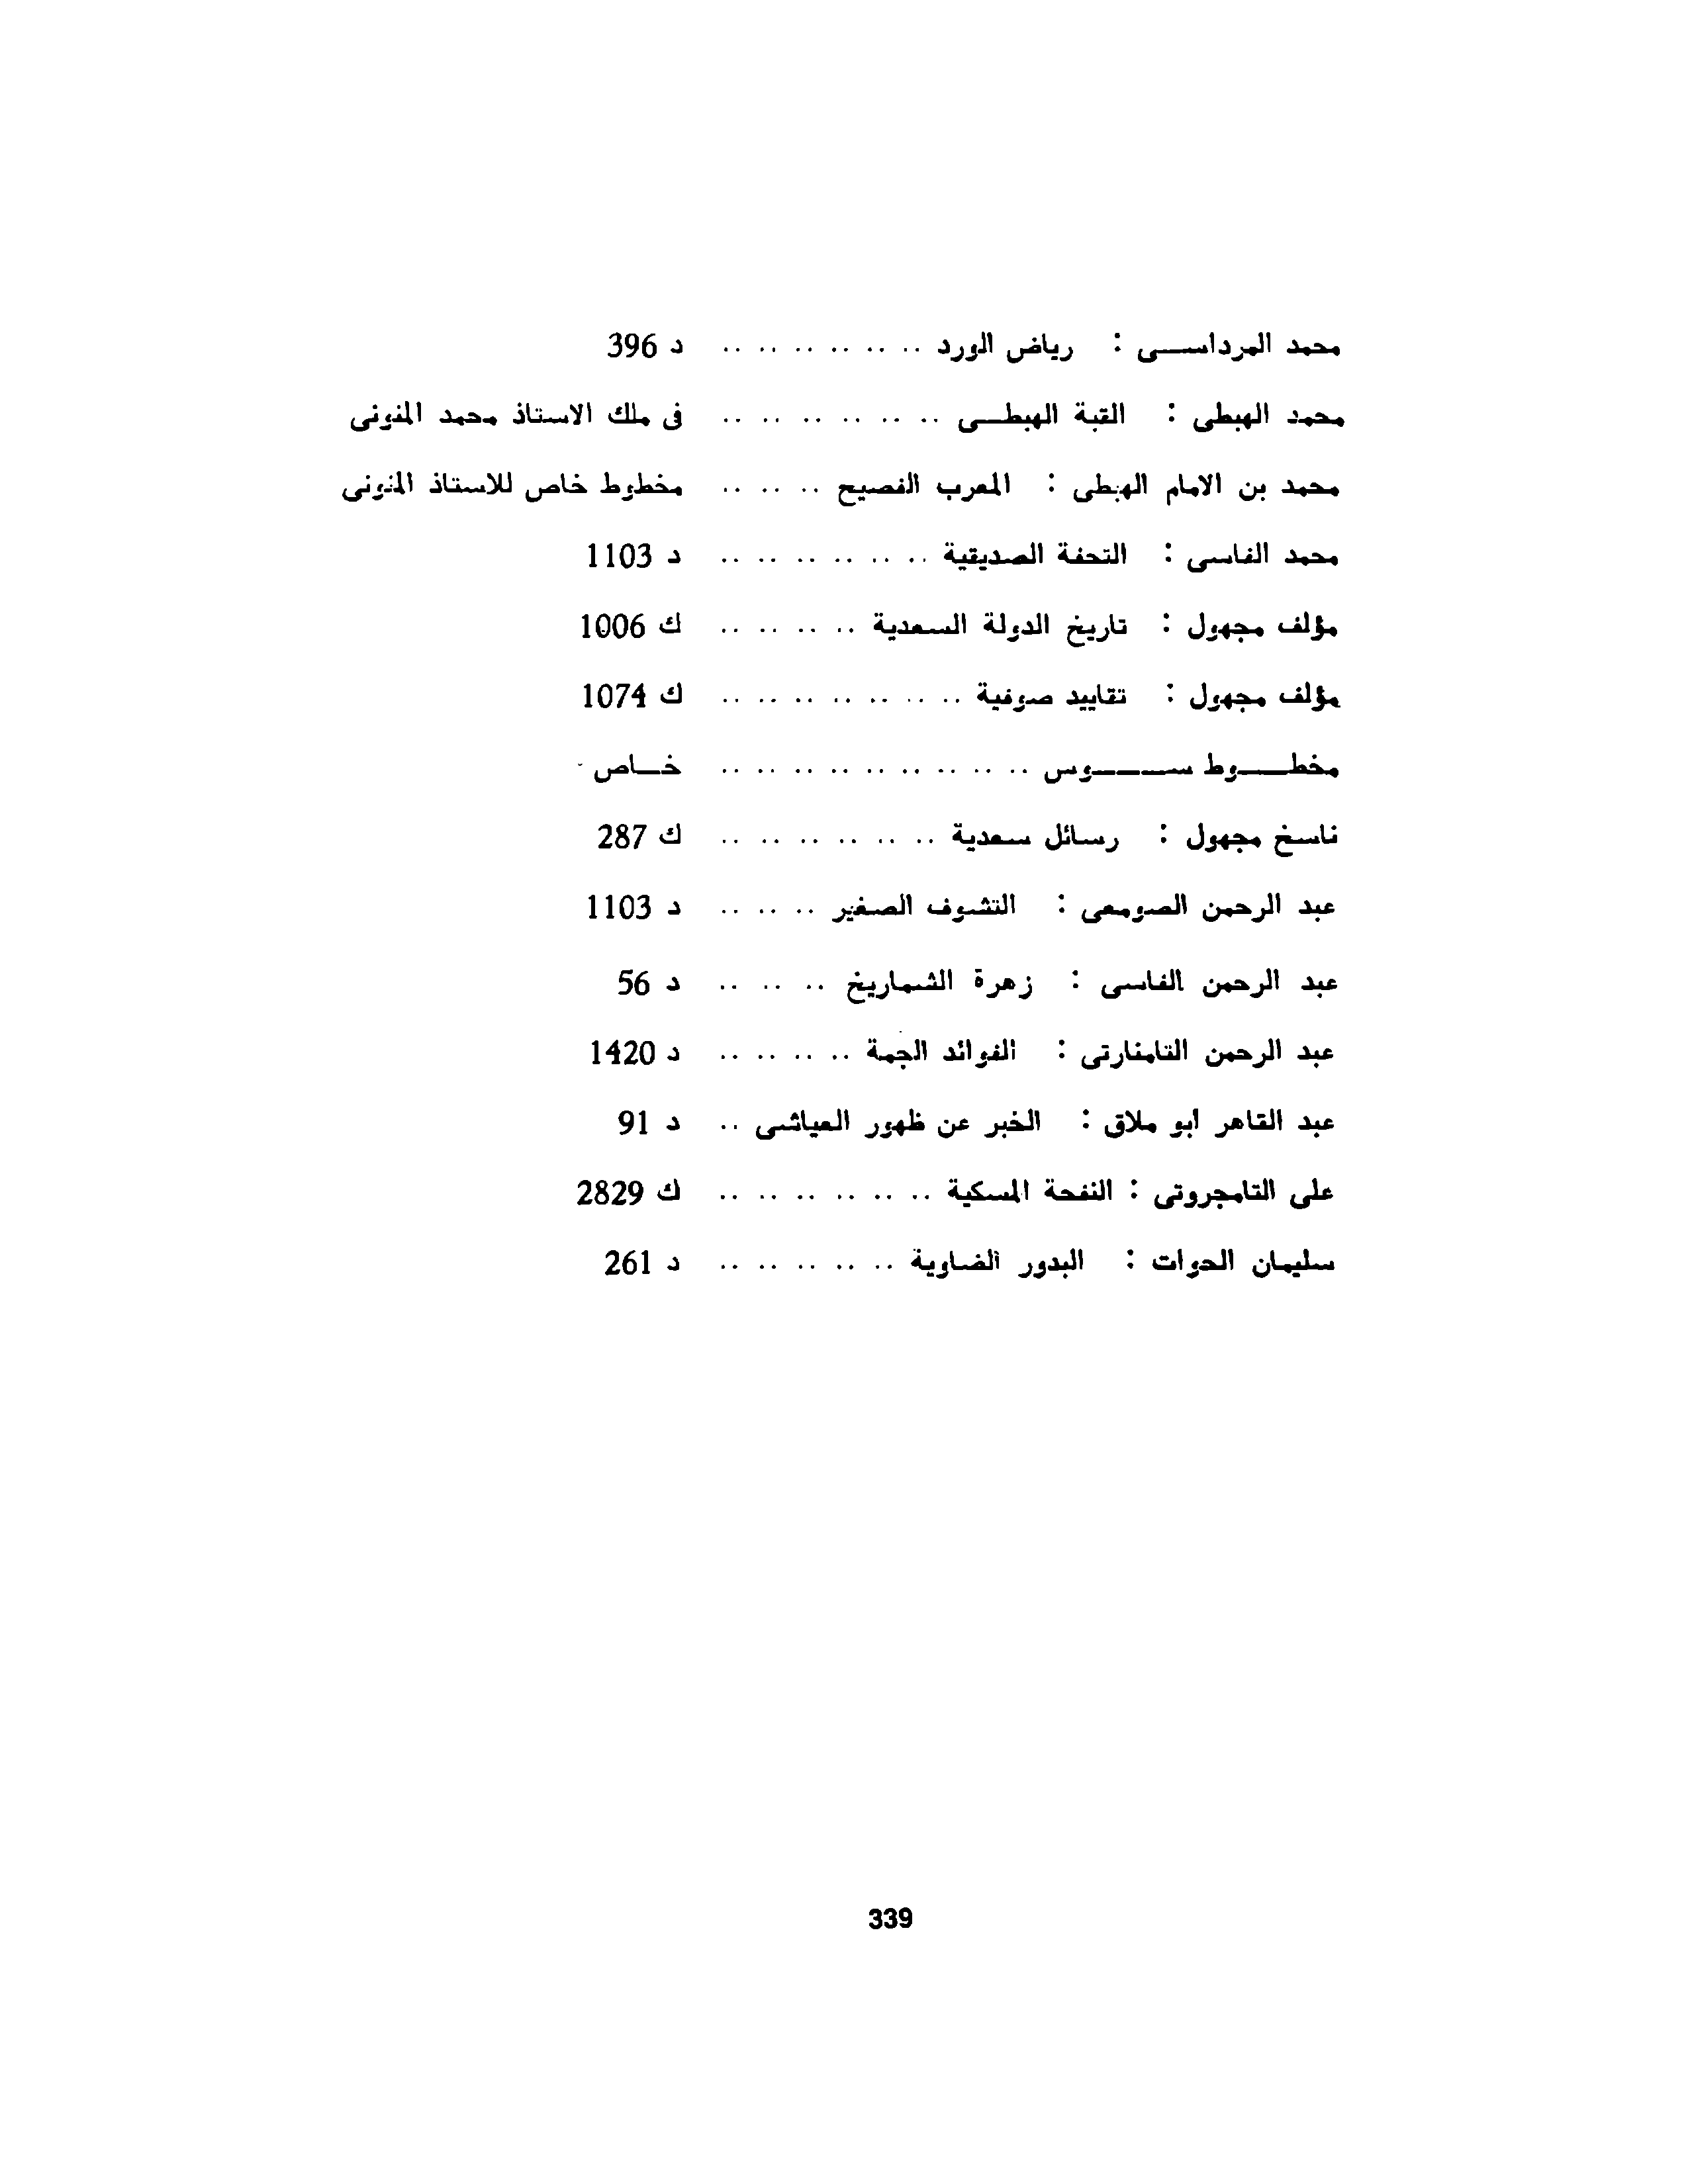 محمد المرداســـى : رياض الورد .. .. .. .. .. .. د 396
محمد الهبطى : القبة الهبطــى .. .. .. .. .. .. فى ملك الاستاذ محمد المنونى
محمد بن الامام الهبطى : المعرب الفصيح .. .. .. مخطوط خاص للاستاذ المنونى
محمد الفاسى : التحفة الصديقية .. .. .. .. .. .. د 1103
مؤلف مجهول : تاريخ الدولة السعدية .. .. .. .. ك 1006
مؤلف مجهول : تقاييد صوفية .. .. .. .. .. .. .. ك 1074
مخطـــوط ســـــوس .. .. .. .. .. .. .. .. .. خــاص
ناسخ مجهول : رسائل سعدية .. .. .. .. .. .. ك 287
عبد الرحمن الصومعى : التشوف الصغير .. .. .. د 1103
عبد الرحمن الفاسى : زهرة الشماريخ .. .. .. د 56
عبد الرحمن التامنارتى : الفوائد الجمة .. .. .. .. د 1420
عبد القاهر ابو ملاق : الخبر عن ظهور العياشى .. د 91
على التامجروتى : النفحة المسكية .. .. .. .. .. .. ك 2829
سليمان الحوات : البدور الضاوية .. .. .. .. .. د 261
339